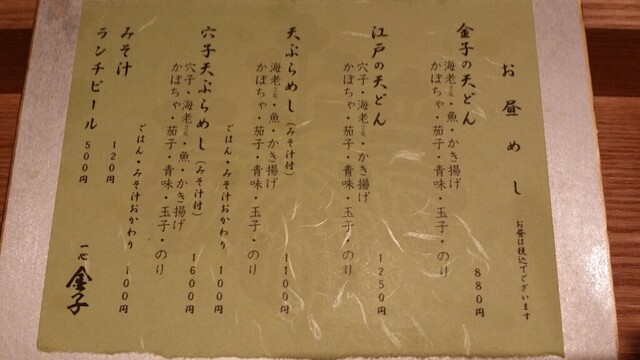 お昼めし
お昼は税込でございます
金子の天どん
海老2尾・魚・かき揚げ
かぼちゃ・茄子・青味・玉子・のり
880円
江戸の天どん
穴子・海老2尾・かき揚げ
かぼちゃ・茄子・青味・玉子・のり
1250円
天ぷらめし(みそ汁付)
海老2尾・魚・かき揚げ
かぼちゃ・茄子・青味・玉子・のり
1100円
ごはん・みそ汁おかわり 100円
穴子天ぷらめし(みそ汁付)
穴子・海老2尾・魚・かき揚げ
かぼちゃ・茄子・青味・玉子・のり
1600円
ごはん・みそ汁おかわり 100円
みそ汁 120円
ランチビール 500円
一心 金子